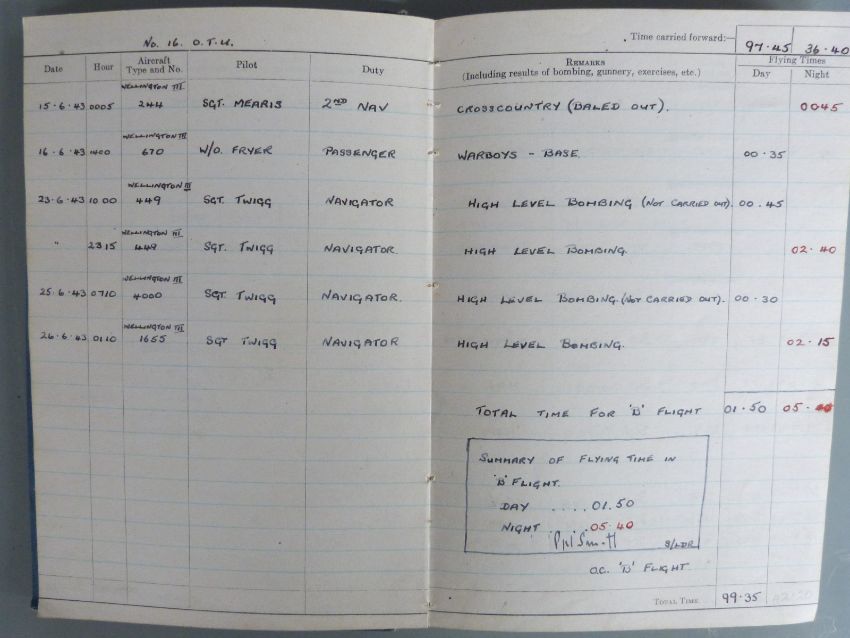 No. 16. O.T.U.
Time carried forward:— 97.45 36.40
Date Hour Aircraft Type and No. Pilot Duty REMARKS (Including results of bombing, gunnery, exercises, etc.) Flying Times Day Night
WELLINGTON III
15.6.43 0005 244 SGT. MEARIS 2ND NAV CROSSCOUNTRY (BALED OUT). 0045
WELLINGTON III
16.6.43 1400 670 W/O. FRYER PASSENGER WARBOYS - BASE. 00.35
WELLINGTON III
23.6.43 1000 449 SGT. TWIGG NAVIGATOR HIGH LEVEL BOMBING (NOT CARRIED OUT). 00.45
WELLINGTON III
" 2315 449 SGT. TWIGG NAVIGATOR. HIGH LEVEL BOMBING. 02.40
WELLINGTON III
25.6.43 0710 4000 SGT. TWIGG NAVIGATOR. HIGH LEVEL BOMBING. (NOT CARRIED OUT). 00.30
WELLINGTON III
26.6.43 0110 1655 SGT TWIGG NAVIGATOR HIGH LEVEL BOMBING. 02.15
TOTAL TIME FOR 'D' FLIGHT 01.50 05.40
SUMMARY OF FLYING TIME IN
'D' FLIGHT.
DAY .... 01.50
NIGHT ... 05.40
S/LDR
O.C. 'D' FLIGHT
TOTAL TIME 99.35